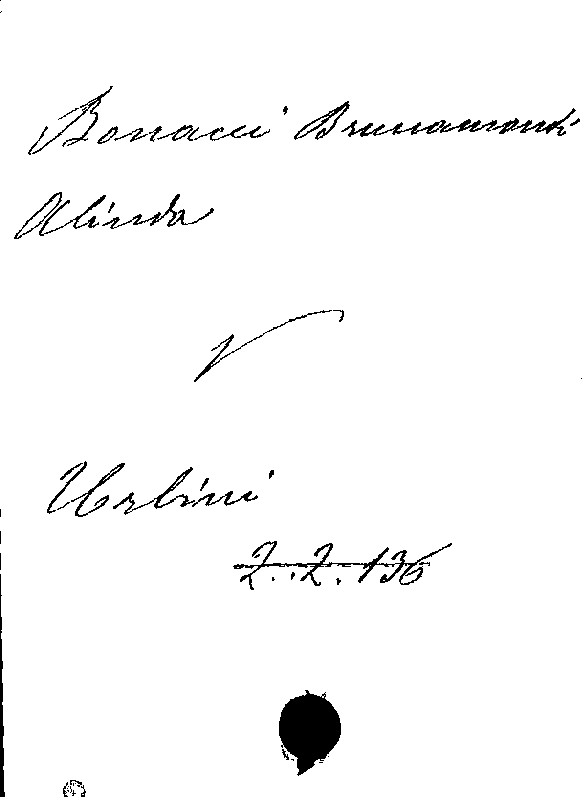 Bonacci Brunamonti
Alinda
V
Urbini
2..2.136